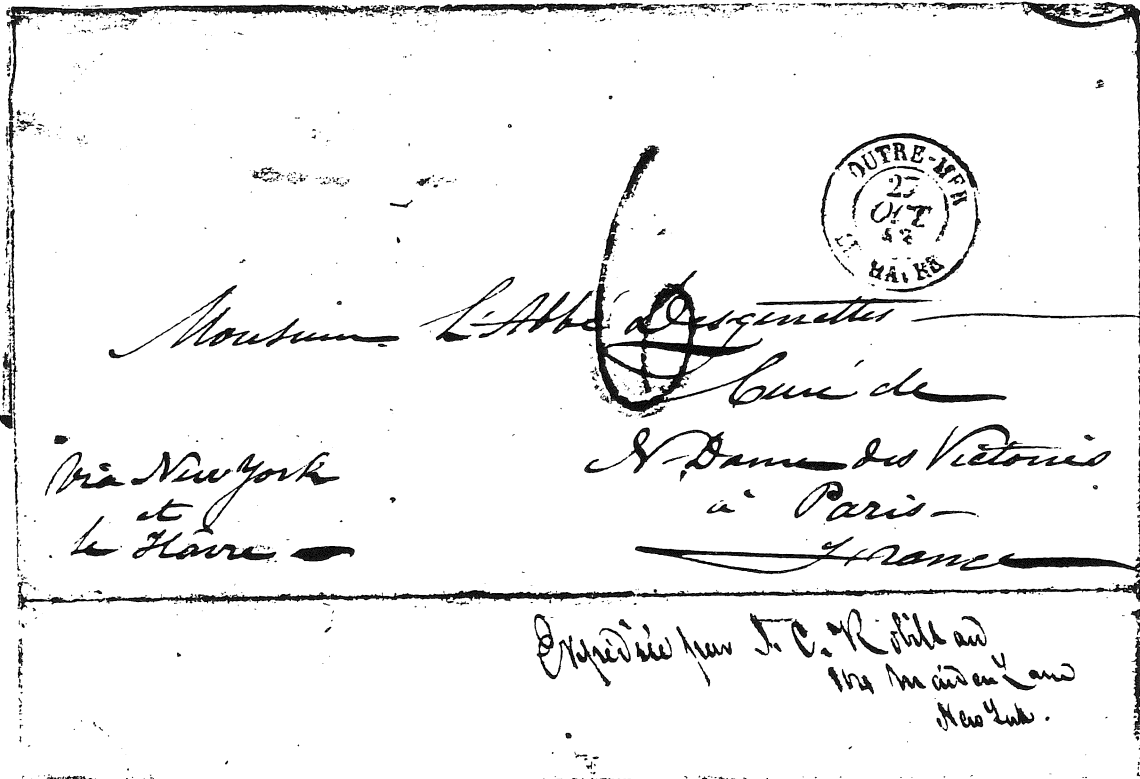 OUTRE-MER
OCT
LE HAVRE
6
Monsieur L'Abbé Desgenettes
Curé de
N. Dame des Victoires
à Paris
France
via New York
et
le Hâvre
Expédiée par
C. Robillard
Maiden Lane
New York.